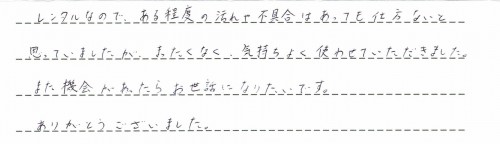 レンタルなので、ある程度の汚れや不具合はあっても仕方ないと
思っていましたが、まったくなく、気持ちよく使わせていただきました。
また機会があったらお世話になりたいです。
ありがとうございました。